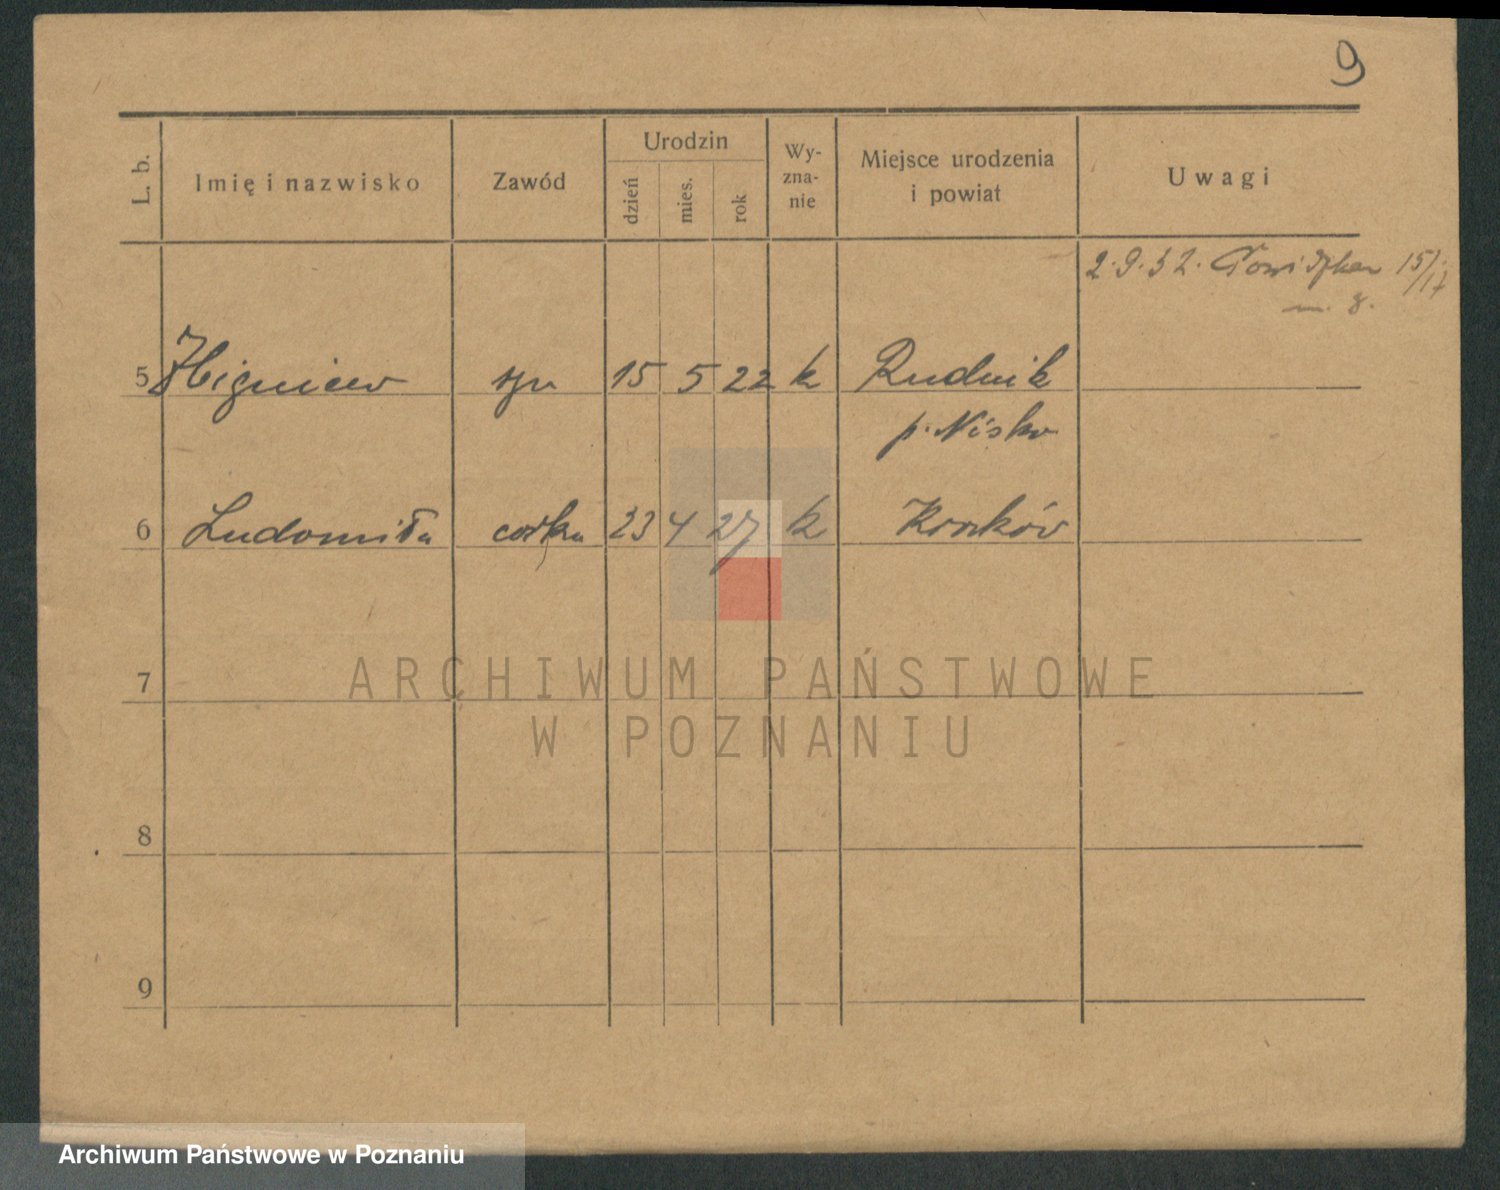 9
L. b.
Imię i nazwisko
Zawód
Urodzin
dzień
mies.
rok
Wy-
zna-
nie
Miejsce urodzenia
i powiat
Uwagi
2.9.32. 15/17
m. 8.
5 Zbigniew syn 15 5 22 k Rudnik
p. Nisko
6 Ludomiła córka 23 4 27 k Kraków
7
8
9
ARCHIWUM PAŃSTWOWE
W POZNANIU
Archiwum Państwowe w Poznaniu